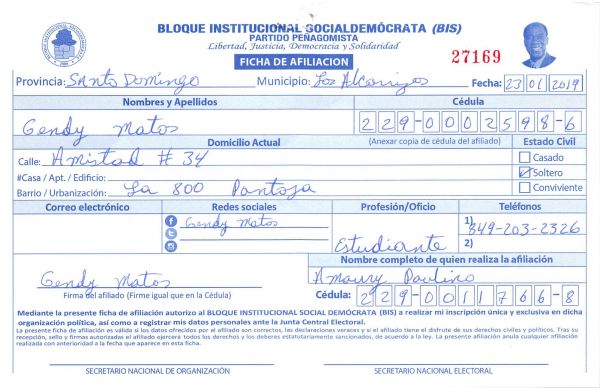 BLOQUE INSTITUCIONAL SOCIALDEMÓCRATA (BIS)
PARTIDO PEÑAGOMISTA
Libertad, Justicia, Democracia y Solidaridad
FICHA DE AFILIACION
27169
Provincia: Santo Domingo Municipio: Los Alcarrizos Fecha: 23 01 2019
Nombres y Apellidos Cédula
Gendy Matos 229-0002598-6
Domicilio Actual (Anexar copia de cédula del afiliado) Estado Civil
Calle: Amistad # 34 Casado
#Casa / Apt. / Edificio: Soltero
Barrio / Urbanización: La 800 Pantoja Conviviente
Correo electrónico Redes sociales Profesión/Oficio Teléfonos
Gendy Matos Estudiante 1) 849-203-2326
2)
Nombre completo de quien realiza la afiliación
Gendy Matos Amaury Paulino
Firma del afiliado (Firme igual que en la Cédula) Cédula: 229-0011766-8
Mediante la presente ficha de afiliación autorizo al BLOQUE INSTITUCIONAL SOCIAL DEMÓCRATA (BIS) a realizar mi inscripción única y exclusiva en dicha
organización política, así como a registrar mis datos personales ante la Junta Central Electoral.
La presente ficha de afiliación es válida si los datos ofrecidos por el afiliado son correctos, las declaraciones veraces y si el afiliado tiene el disfrute de sus derechos civiles y políticos. Tras su
recepción, sello y firmas autorizadas el afiliado ejercerá todos los derechos y los deberes estatutariamente consignados, de acuerdo a la ley. La presente afiliación anula cualquier afiliación
realizada con anterioridad a la fecha que aparece en esta ficha.
SECRETARIO NACIONAL DE ORGANIZACIÓN SECRETARIO NACIONAL ELECTORAL